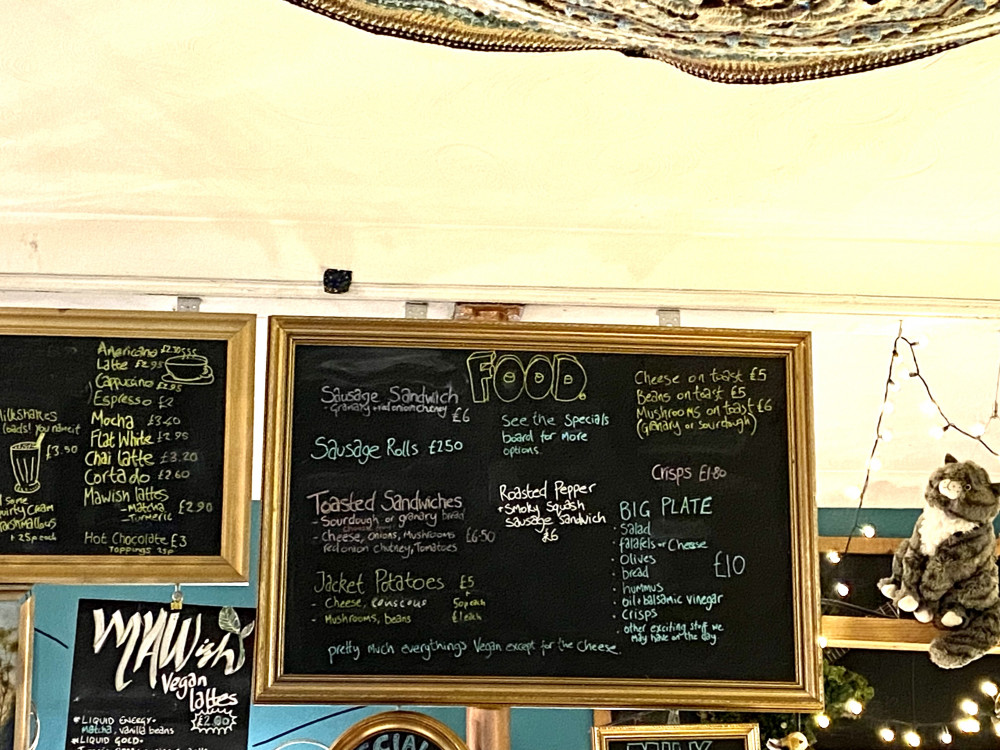 Americano
Latte £2.95
Cappucino £2.95
Espresso £2
Mocha £3.40
Flat White £2.95
Chai latte £3.20
Cortado £2.60
Mawish lattes
- Matcha
- Turmeric
£2.90
Hot Chocolate £3
Toppings 25p
ilkshakes
loads! You name it
£3.50
Cream
arshmallows
+ 25p each
FOOD.
Sausage Sandwich
- Granary + red onion chutney
£6
Sausage Rolls £2.50
See the Specials
board for more
options.
Cheese on toast £5
Beans on toast £5
Mushrooms on toast £6
(granary or sourdough)
Crisps £1.80
Toasted Sandwiches
- Sourdough or granary bread
- cheese, onions, Mushrooms
red onion chutney, Tomatoes
£6.50
Roasted Pepper
+ Smoky Squash
sausage Sandwich
£6
Jacket Potatoes £5
+
- Cheese, couscous 50p each
- Mushrooms, beans £1 each
BIG PLATE
· Salad
· falafels or Cheese
· Olives
· bread
· hummus
· oil + balsamic vinegar
· Crisps
· other exciting stuff we
may have on the day
£10
pretty much everythings Vegan except for the cheese.
MAWish
Vegan
lattes
£2.90
* LIQUID ENERGY -
Matcha, vanilla beans
* LIQUID GOLD -